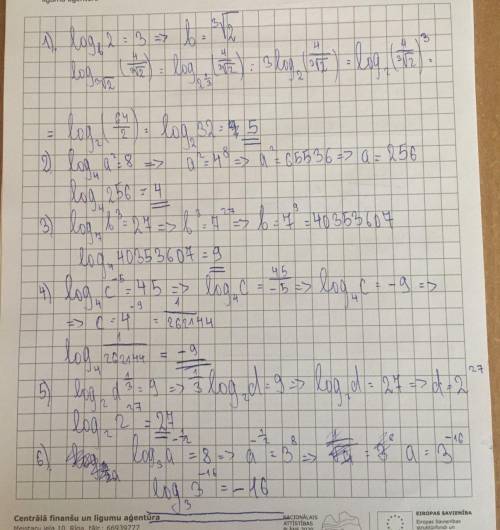 līgumu aģentūra
1). log_b 2 = 3 => b = ∛2
log_∛2 (4/∛2) = log_{2^{1/3}} (4/∛2) = 3log_2 (4/∛2) = log_2 (4/∛2)^3 =
= log_2 (64/2) = log_2 32 = 5
2) log_4 a^2 = 8 => a^2 = 4^8 => a^2 = 65536 => a = 256
log_4 256 = 4
3) log_7 b^3 = 27 => b^3 = 7^27 => b = 7^9 = 40353607
log_7 40353607 = 9
4) log_4 c^-5 = 45 => log_4 c = 45/-5 => log_4 c = -9 =>
=> c = 4^-9 = 1/262144
log_4 1/262144 = -9
5) log_2 d^{1/3} = 9 => 1/3 log_2 d = 9 => log_2 d = 27 => d = 2^27
log_2 2^27 = 27
6) log_3 a^{-1/2} = 8 => a^{-1/2} = 3^8 => a = 3^-16
log_3 3^-16 = -16
Centrālā finanšu un līgumu aģentūra
Meistaru iela 10, Rīga, tālr.: 66939777
NACIONĀLAIS
ATTĪSTĪBAS
PLĀNS 2020
EIROPAS SAVIENĪBA
Eiropas Savienības
struktūrfondi un